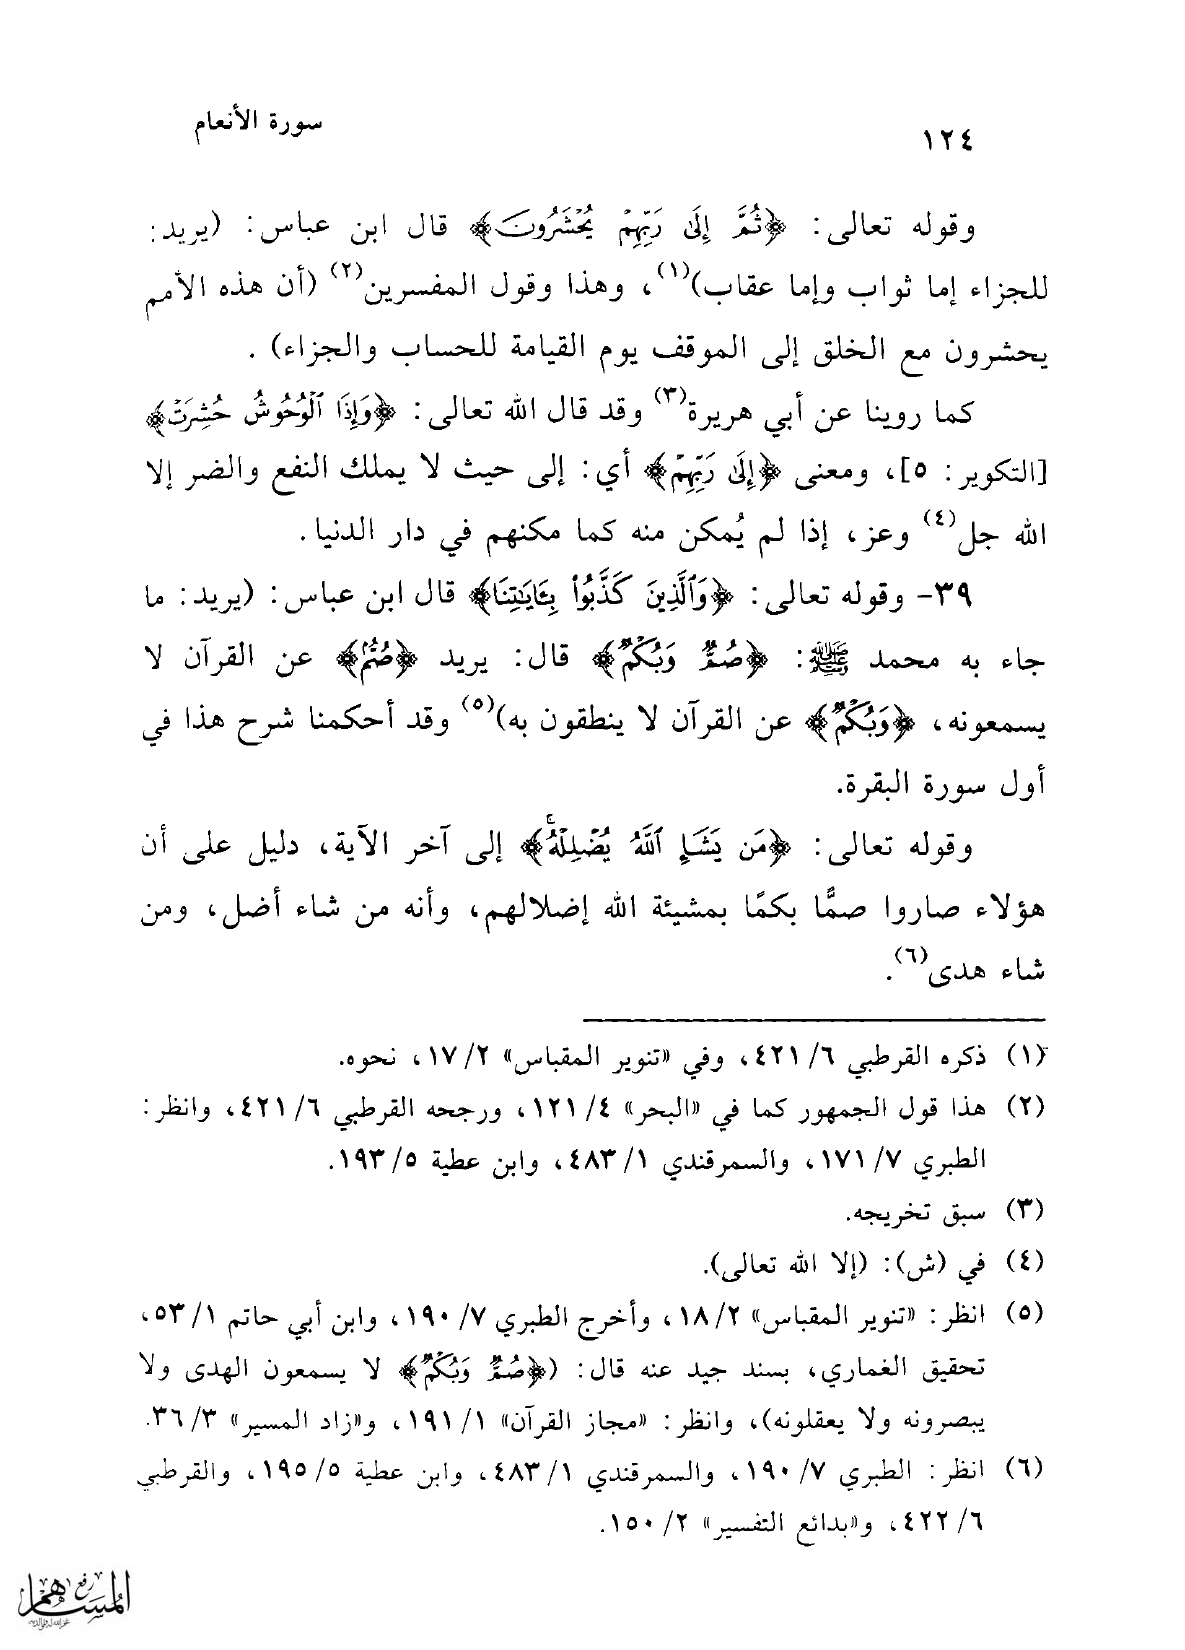 ١٢٤
سورة الأنعام
وقوله تعالى: ﴿ثُمَّ إِلَىٰ رَبِّهِمْ يُحْشَرُونَ﴾ قال ابن عباس: (يريد:
للجزاء إما ثواب وإما عقاب)(١)، وهذا وقول المفسرين(٢) (أن هذه الأمم
يحشرون مع الخلق إلى الموقف يوم القيامة للحساب والجزاء) .
كما روينا عن أبي هريرة(٣) وقد قال الله تعالى: ﴿وَإِذَا ٱلْوُحُوشُ حُشِرَتْ﴾
[التكوير: ٥]، ومعنى ﴿إِلَىٰ رَبِّهِمْ﴾ أي: إلى حيث لا يملك النفع والضر إلا
الله جل(٤) وعز، إذا لم يُمكن منه كما مكنهم في دار الدنيا.
٣٩- وقوله تعالى: ﴿وَٱلَّذِينَ كَذَّبُوا۟ بِـَٔايَـٰتِنَا﴾ قال ابن عباس: (يريد: ما
جاء به محمد ﷺ: ﴿صُمٌّ وَبُكْمٌ﴾ قال: يريد ﴿صُمٌّ﴾ عن القرآن لا
يسمعونه، ﴿وَبُكْمٌ﴾ عن القرآن لا ينطقون به)(٥) وقد أحكمنا شرح هذا في
أول سورة البقرة.
وقوله تعالى: ﴿مَن يَشَإِ ٱللَّهُ يُضْلِلْهُ﴾ إلى آخر الآية، دليل على أن
هؤلاء صاروا صمًّا بكمًا بمشيئة الله إضلالهم، وأنه من شاء أضل، ومن
شاء هدى(٦).
(١) ذكره القرطبي ٦/ ٤٢١، وفي «تنوير المقباس» ٢/ ١٧، نحوه.
(٢) هذا قول الجمهور كما في «البحر» ٤/ ١٢١، ورجحه القرطبي ٦/ ٤٢١، وانظر:
الطبري ٧/ ١٧١، والسمرقندي ١/ ٤٨٣، وابن عطية ٥/ ١٩٣.
(٣) سبق تخريجه.
(٤) في (ش): (إلا الله تعالى).
(٥) انظر: «تنوير المقباس» ٢/ ١٨، وأخرج الطبري ٧/ ١٩٠، وابن أبي حاتم ١/ ٥٣،
تحقيق الغماري، بسند جيد عنه قال: (﴿صُمٌّ وَبُكْمٌ﴾ لا يسمعون الهدى ولا
يبصرونه ولا يعقلونه)، وانظر: «مجاز القرآن» ١/ ١٩١، و«زاد المسير» ٣/ ٣٦.
(٦) انظر: الطبري ٧/ ١٩٠، والسمرقندي ١/ ٤٨٣، وابن عطية ٥/ ١٩٥، والقرطبي
٦/ ٤٢٢، و«بدائع التفسير» ٢/ ١٥٠.